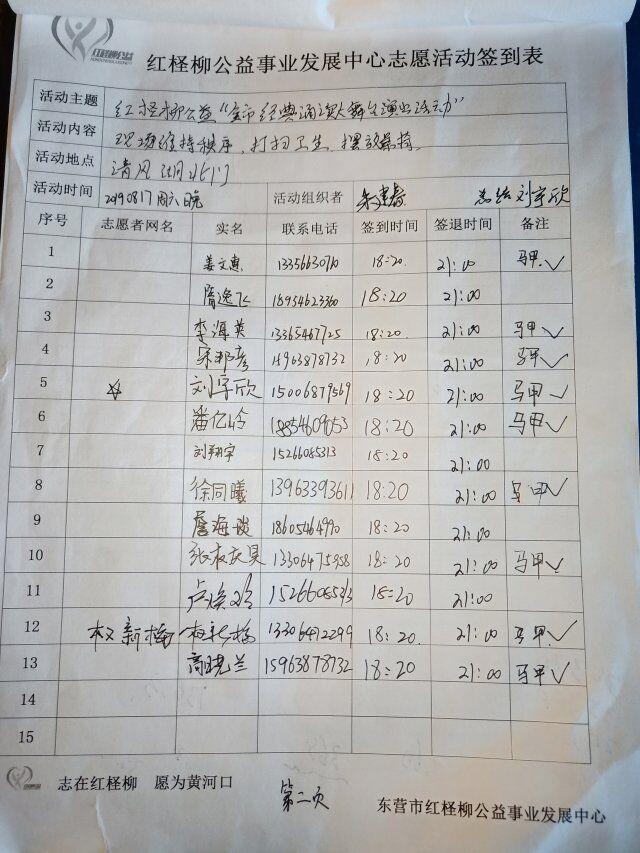 红柽柳公益
红柽柳公益事业发展中心志愿活动签到表
活动主题 红柽柳公益“全市经典诵读大舞台演出活动”
活动内容 现场维持秩序,打扫卫生,摆放桌椅。
活动地点 清风湖北门
活动时间 20190817周六晚 活动组织者 朱建春 总结刘宇欣
序号 志愿者网名 实名 联系电话 签到时间 签退时间 备注
1 姜文惠 13356630710 18:20 21:00 马甲 ✓
2 隋逸飞 18954623360 18:20 21:00
3 李海英 13365467725 18:20 21:00 马甲 ✓
4 宋邦彦 15963878732 18:20 21:00 马甲 ✓
5 ☆ 刘宇欣 15006879569 18:20 21:00 马甲 ✓
6 潘亿晗 18854609053 18:20 21:00 马甲 ✓
7 刘翔宇 15266085313 18:20 21:00
8 徐同曦 13963393611 18:20 21:00 马甲 ✓
9 18605464990 18:20 21:00
10 13306475958 18:20 21:00 马甲 ✓
11 15266085313 18:20 21:00
12 13306472299 18:20 21:00 马甲 ✓
13 高晓兰 15963878732 18:20 21:00 马甲 ✓
14
15
志在红柽柳 愿为黄河口
第二页
东营市红柽柳公益事业发展中心